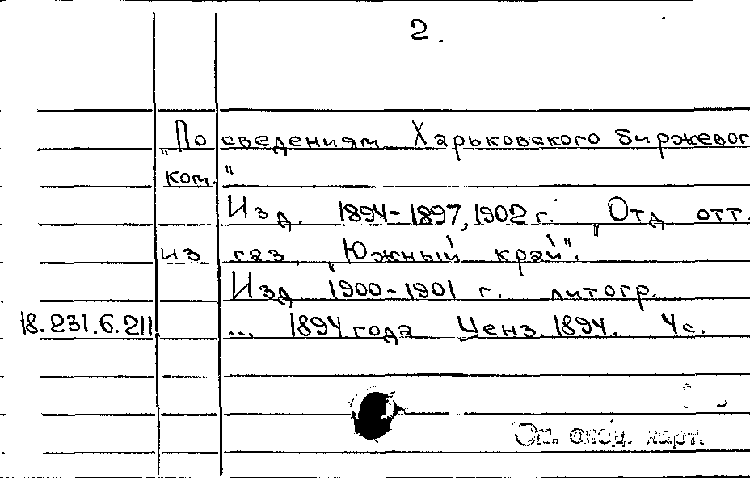 2.
„По сведениям Харьковского биржевог
ком."
Изд. 1894-1897, 1902 г. „Отд отт.
из газ. „Южный край".
Изд 1900-1901 г. литогр.
18.231.6.211 ... 1894 года Ценз 1894. 4с.
См. опод. карт.